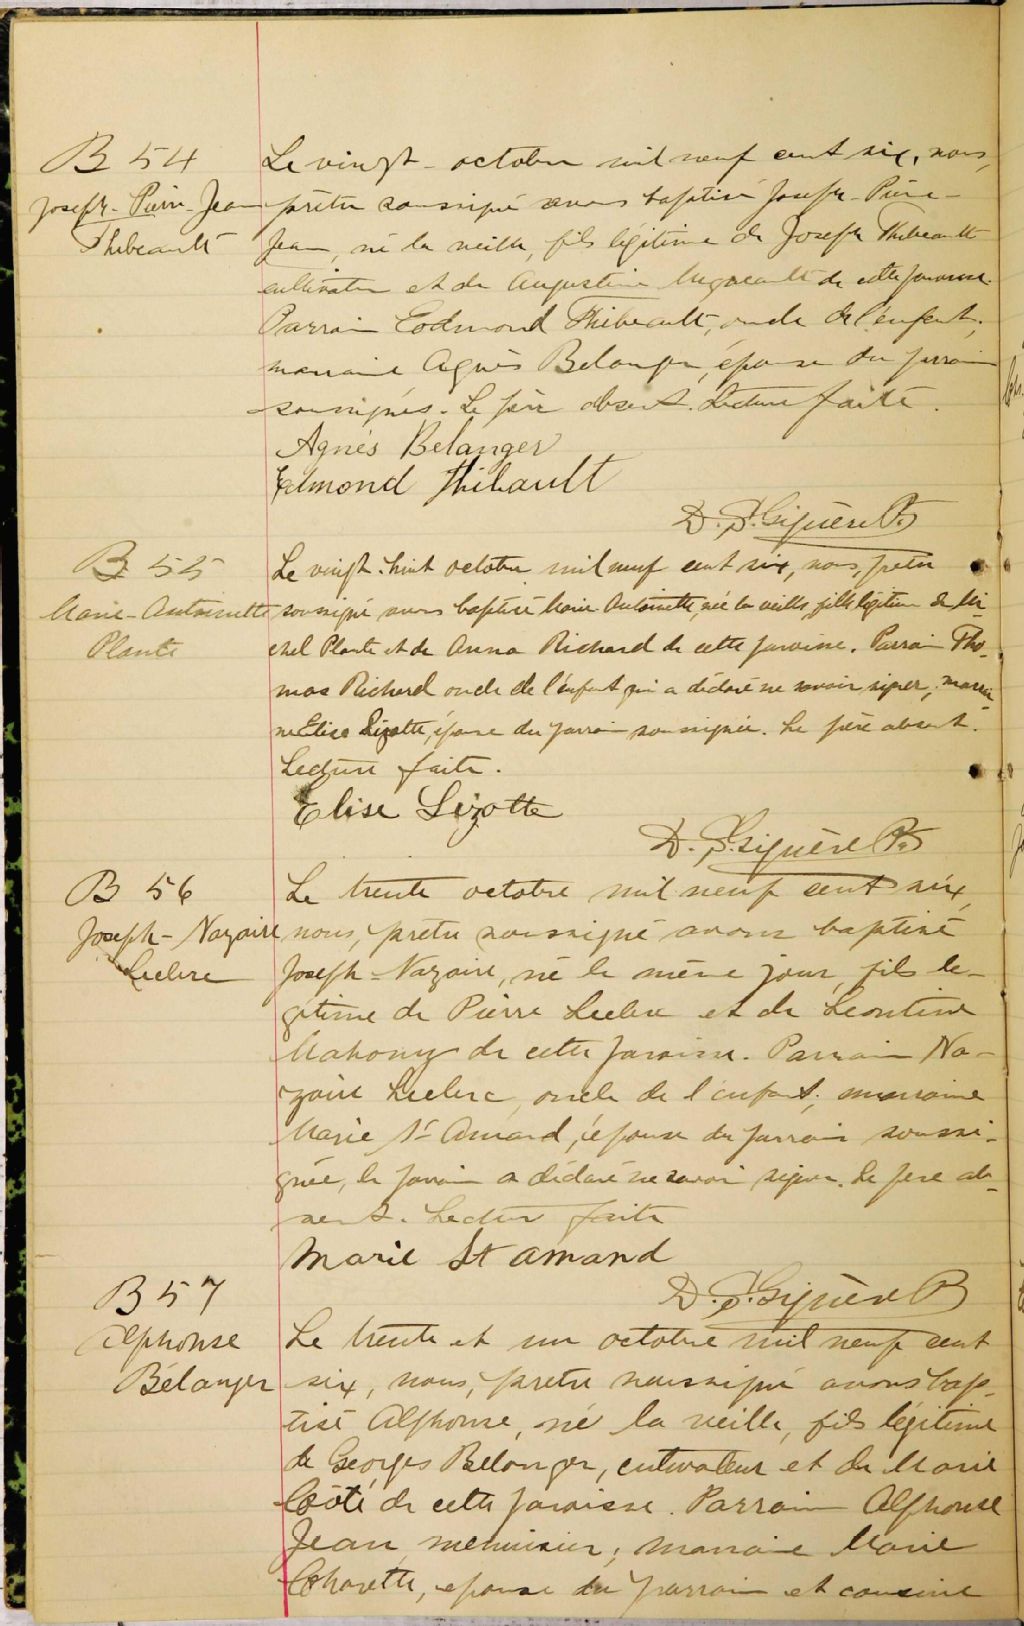 B 54
Joseph-Pierre-Jean
Thibeault
Le vingt-octobre mil neuf cent six, nous,
prêtre soussigné avons baptisé Joseph-Pierre-
Jean, né la veille, fils légitime de Joseph Thibeault
cultivateur et de Augustine de cette paroisse.
Parrain Edmond Thibeault, oncle de l'enfant;
marraine Agnès Belanger, épouse du parrain
soussignés. Le père absent. Lecture faite.
Agnés Belanger
Edmond Thibault
D. S. Giguère Ptre
B 55
Marie-Antoinette
Plante
Le vingt-huit octobre mil neuf cent six, nous, prêtre
soussigné avons baptisé Marie Antoinette, née la veille, fille légitime de Mi-
chel Plante et de Anna Richard de cette paroisse. Parrain Tho-
mas Richard oncle de l'enfant qui a déclaré ne savoir signer; marrai-
ne Elise Lizotte, épouse du parrain soussignée. Le père absent.
Lecture faite.
Elise Lizotte
D. S. Giguère Ptre
B 56
Joseph-Nazaire
Leclerc
Le trente octobre mil neuf cent six,
nous, prêtre soussigné avons baptisé
Joseph-Nazaire, né le même jour, fils lé-
gitime de Pierre Leclerc et de Leontine
Mahony de cette paroisse. Parrain Na-
zaire Leclerc, oncle de l'enfant; marraine
Marie St-Amand, épouse du parrain soussi-
gnée, le parrain a déclaré ne savoir signer. Le père ab-
sent. Lecture faite
Marie St Amand
D. S. Giguère Ptre
B 57
Alphonse
Bélanger
Le trente et un octobre mil neuf cent
six, nous, prêtre soussigné avons bap-
tisé Alphonse, né la veille, fils légitime
de Georges Belanger, cultivateur et de Marie
Côté de cette paroisse. Parrain Alphonse
Jean, menuisier; marraine Marie
Charette, épouse du parrain et cousine